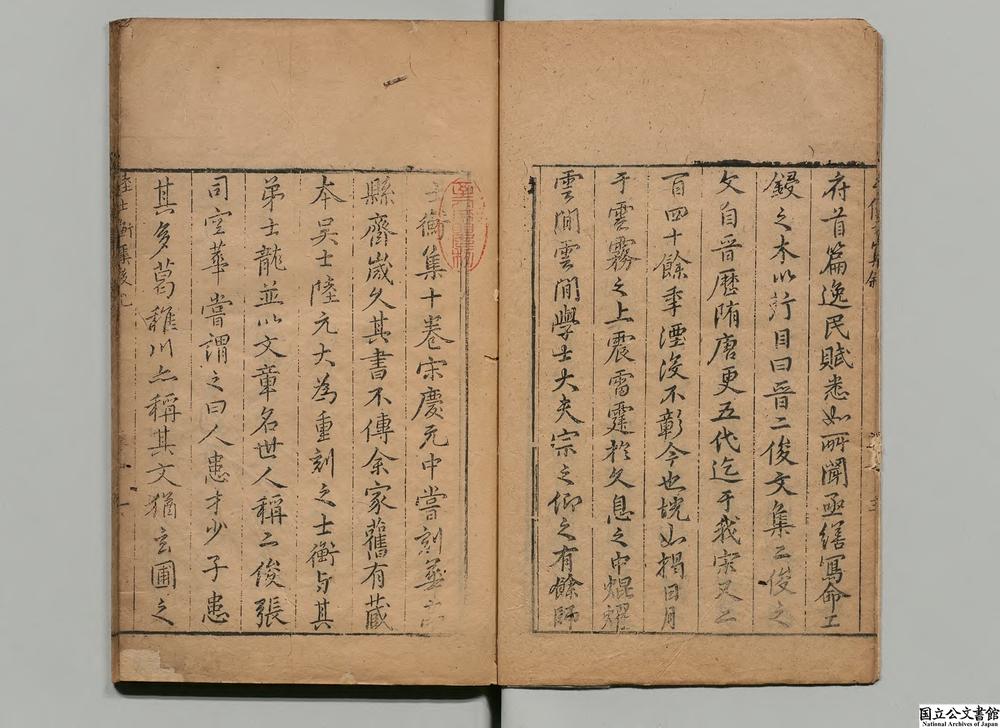 府首篇逸民賦悉如所聞亟繕寫命工
鋟之木以行目曰晉二俊文集二俊之
文自晉歷隋唐更五代迄于我宋又二
百四十餘年湮沒不彰今也恍如揭日月
于雲霧之上震雷霆於久息之中焜燿
雲間雲間學士大夫宗之仰之有餘師
士衡集十卷宋慶元中嘗刻華亭
縣齋歲久其書不傳余家舊有藏
本吳士陸元大為重刻之士衡与其
弟士龍並以文章名世人稱二俊張
司空華嘗謂之曰人患才少子患
其多葛稚川亦稱其文猶玄圃之
陸士衡集後
国立公文書館
National Archives of Japan